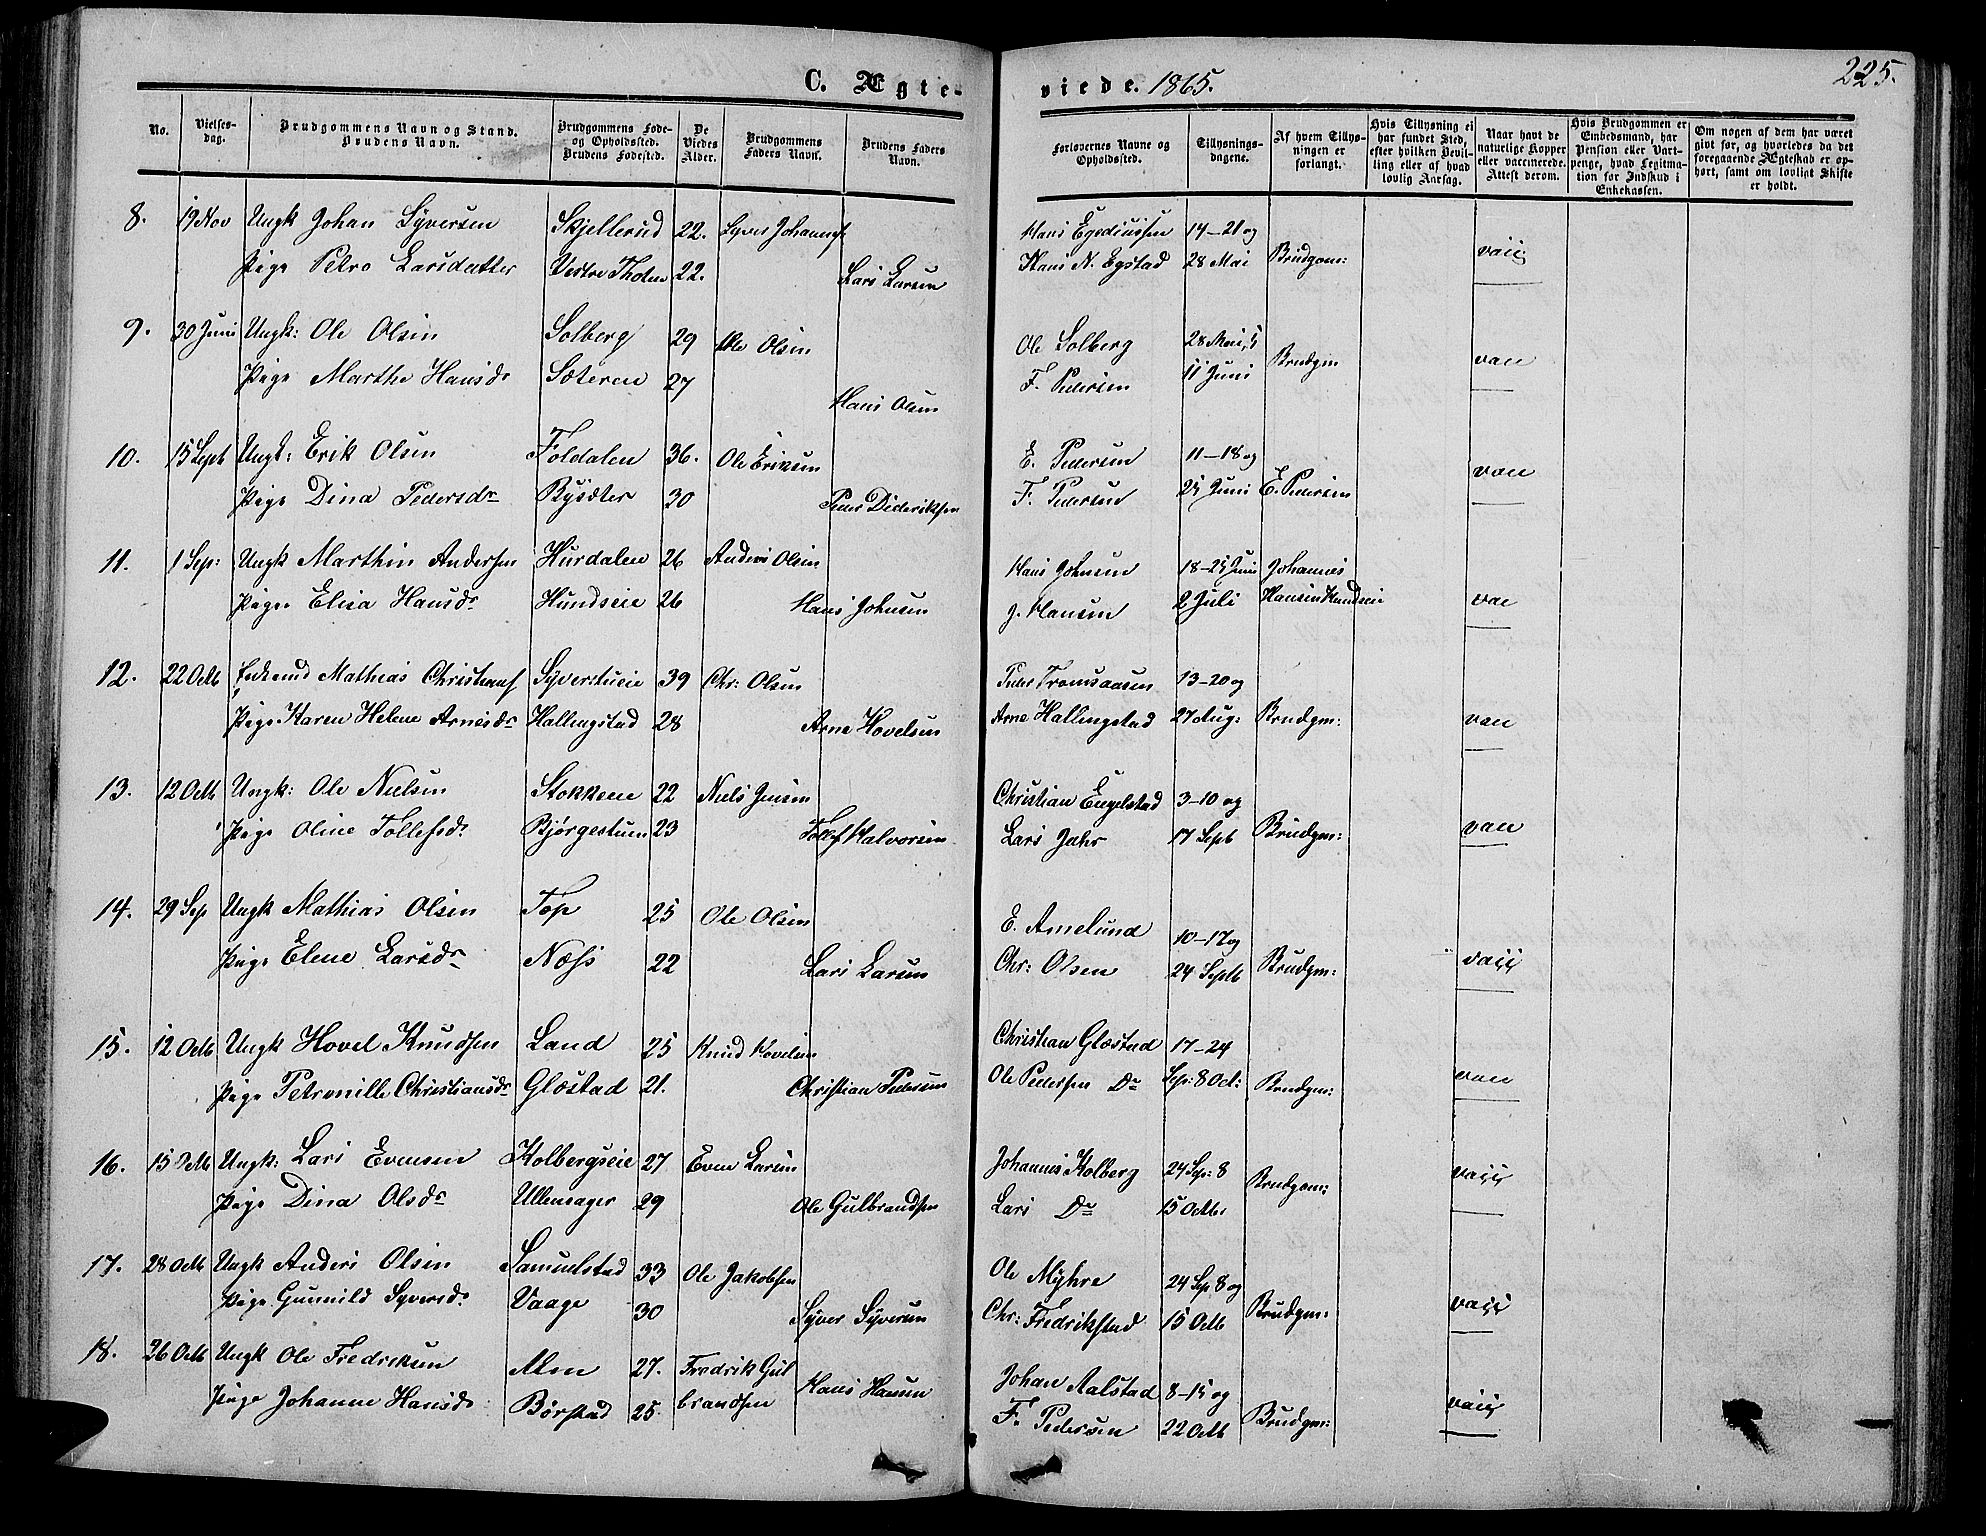 225.
C. Ægteviede. 1865.
No.
Vielsesdag.
Brudgommens Navn og Stand. Brudens Navn.
Brudgommens Føde- og Opholdssted. Brudens Fødested.
De Viedes Alder.
Brudgommens Faders Navn.
Brudens Faders Navn.
Forlovernes Navne og Opholdssted.
Tillysningsdagene.
Af hvem Tillysningen er forlangt.
Hvis Tillysning ei har fundet Sted, efter hvilken Bevilling eller af hvad lovlig Aarsag.
Naar havt de naturlige Kopper eller vaccinerede. Attest derom.
Hvis Brudgommen er Embedsmand, har Pension eller Vartpenge, hvad Legitmation for Indskud i Enkekassen.
Om nogen af dem har været givt før, og hvorledes da det foregaaende Ægteskab er ophørt, samt om lovligt Skifte er holdt.
8. 19 Nov Ungk Johan Syversen Skjellerud 22. Syver Johannes Hans Egediussen 14-21 og
Pige Petro Larsdatter Vestre Thoten 22. Lars Larsen Hans N. Egstad 28 Mai Brudgom: vacc
9. 30 Juni Ungk: Ole Olsen Solberg 29 Ole Olsen Ole Solberg 28 Mai,
Pige Marthe Hansdr Sæteren 27 Hans Olsen F. Pedersen 11 Juni Brudgm vacc
10. 15 Sept Ungk: Erik Olsen Foldalen 36. Ole Eriksen E. Pedersen 11-18 og
Pige Dina Pedersdr Bysæter 30 Peder Dideriksen F. Pedersen 25 Juni E. Pedersen vacc
11. 1 Sep: Ungk Marthin Andersen Hurdalen 26 Anders Olsen Hans Johnsen 18-25 Juni Johannes
Pige Elisa Hansdr Hundseie 26 Hans Johnsen J. Hansen 2 Juli Hansen Hundseie vac
12. 22 Octb Mathias Christians 39 Chr: Olsen Peder 13-20 og
Pige Karen Helene Arnesdr Hallingstad 28 Arne Hovelsen Arne Hallingstad 27 Aug: Brudgm: vacc
13. 12 Octb Ungk: Ole Nielsen Stokkene 22 Niels Jensen Christian Engelstad 3-10 og
Pige Oline Tollefsdr Bjørgestuen 23 Tollef Halvorsen Lars Jahr 17 Sept Brudgm: vacc
14. 29 Sep Ungk Mathias Olsen Top 25 Ole Olsen E. Amelund 10-17 og
Pige Elene Larsdr Næss 22 Lars Larsen Chr: Olsen 24 Septb Brudgm: vacc
15. 12 Octb Ungk Hovel Knudsen Land 25 Knud Hovelsen Christian Glæstad 17-24
Pige Petronille Christiansdr Glæstad 21. Christian Pedersen Ole Pedersen Do Sep: 8 Oct: Brudgm: vacc
16. 15 Octb Ungk: Lars Evensen Kolbergseie 27 Even Larsen Johannes Kolberg 24 Sep: 8
Pige Dina Olsdr Ullensager 29 Ole Gulbrandsen Lars Do 15 Octb: Brudgom: vacc
17. 28 Octb Ungk Anders Olsen Samuelstad 33 Ole Jakobsen Ole Myhre 24 Sep 8 og
Pige Gunnild Syversdr Vaage 30 Syver Syversen Chr: Fredrikstad 15 Octb Brudgm: vacc
18. 26 Octb Ungk Ole Fredriksen Alm 27. Fredrik Gulbrandsen Johan Aalstad 8-15 og
Pige Johanne Hansdr Børstad 25. Hans Hansen F. Pedersen 22 Octb Brudgm: vacc